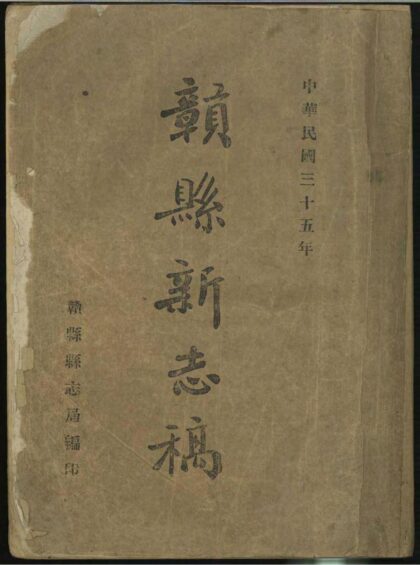 中華民國三十五年
贛縣新志稿
贛縣縣志局編印